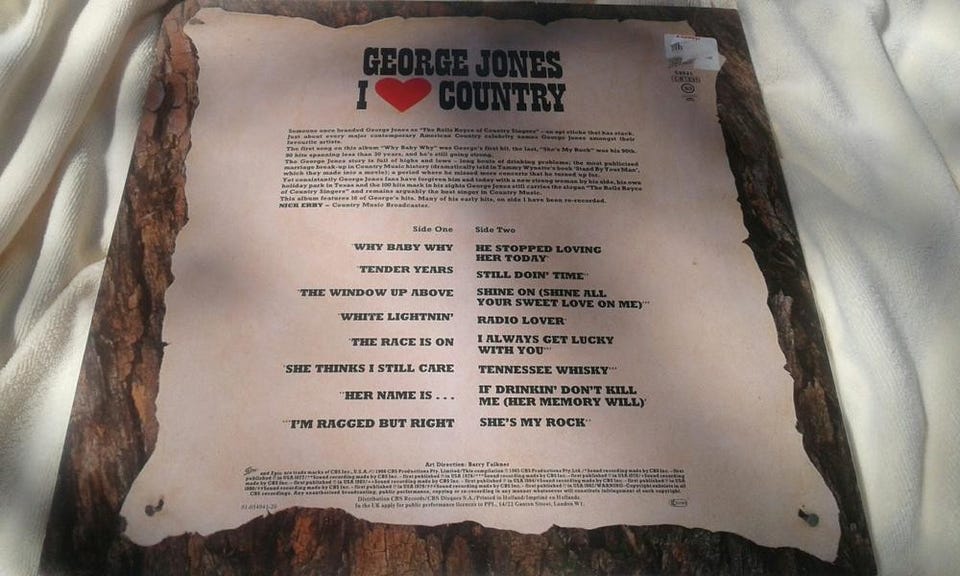 GEORGE JONES
I ❤ COUNTRY
Someone once branded George Jones as "The Rolls Royce of Country Singers" – an apt cliche that has stuck.
Just about every major contemporary American Country celebrity names George Jones amongst their
favourite artists.
The first song on this album "Why Baby Why" was George's first hit, the last, "She's My Rock" was his 90th.
90 hits spanning less than 30 years, and he's still going strong.
The George Jones story is full of highs and lows – long bouts of drinking problems; the most publicised
marriage break-up in Country Music history (dramatically told in Tammy Wynette's book 'Stand By Your Man',
which they made into a movie); a period where he missed more concerts that he turned up for.
Yet consistently George Jones fans have forgiven him and today with a new strong woman by his side, his own
holiday park in Texas and the 100 hits mark in his sights George Jones still carries the slogan "The Rolls Royce
of Country Singers" and remains arguably the best singer in Country Music.
This album features 16 of George's hits. Many of his early hits, on side 1 have been re-recorded.
NICK ERBY – Country Music Broadcaster.
Side One Side Two
WHY BABY WHY
HE STOPPED LOVING
HER TODAY
TENDER YEARS
STILL DOIN' TIME
THE WINDOW UP ABOVE
SHINE ON (SHINE ALL
YOUR SWEET LOVE ON ME)
WHITE LIGHTNIN'
RADIO LOVER
THE RACE IS ON
I ALWAYS GET LUCKY
WITH YOU
SHE THINKS I STILL CARE
TENNESSEE WHISKY
HER NAME IS . . .
IF DRINKIN' DON'T KILL
ME (HER MEMORY WILL)
I'M RAGGED BUT RIGHT
SHE'S MY ROCK
Art Direction: Barry Falkner
and Epic are trade marks of CBS Inc., U.S.A.
CBS recordings. Any unauthorised broadcasting, public performance, copying or re-recording in any manner whatsoever will constitute infringement of such copyright.
Distribution CBS Records/CBS Disques S.A./Printed in Holland/Imprimé en Hollande.
In the UK apply for public performance licences to PPL, 14/22 Ganton Street, London W1.